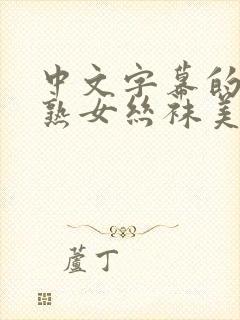 中文字幕的
熟女絲袜美
蘆丁